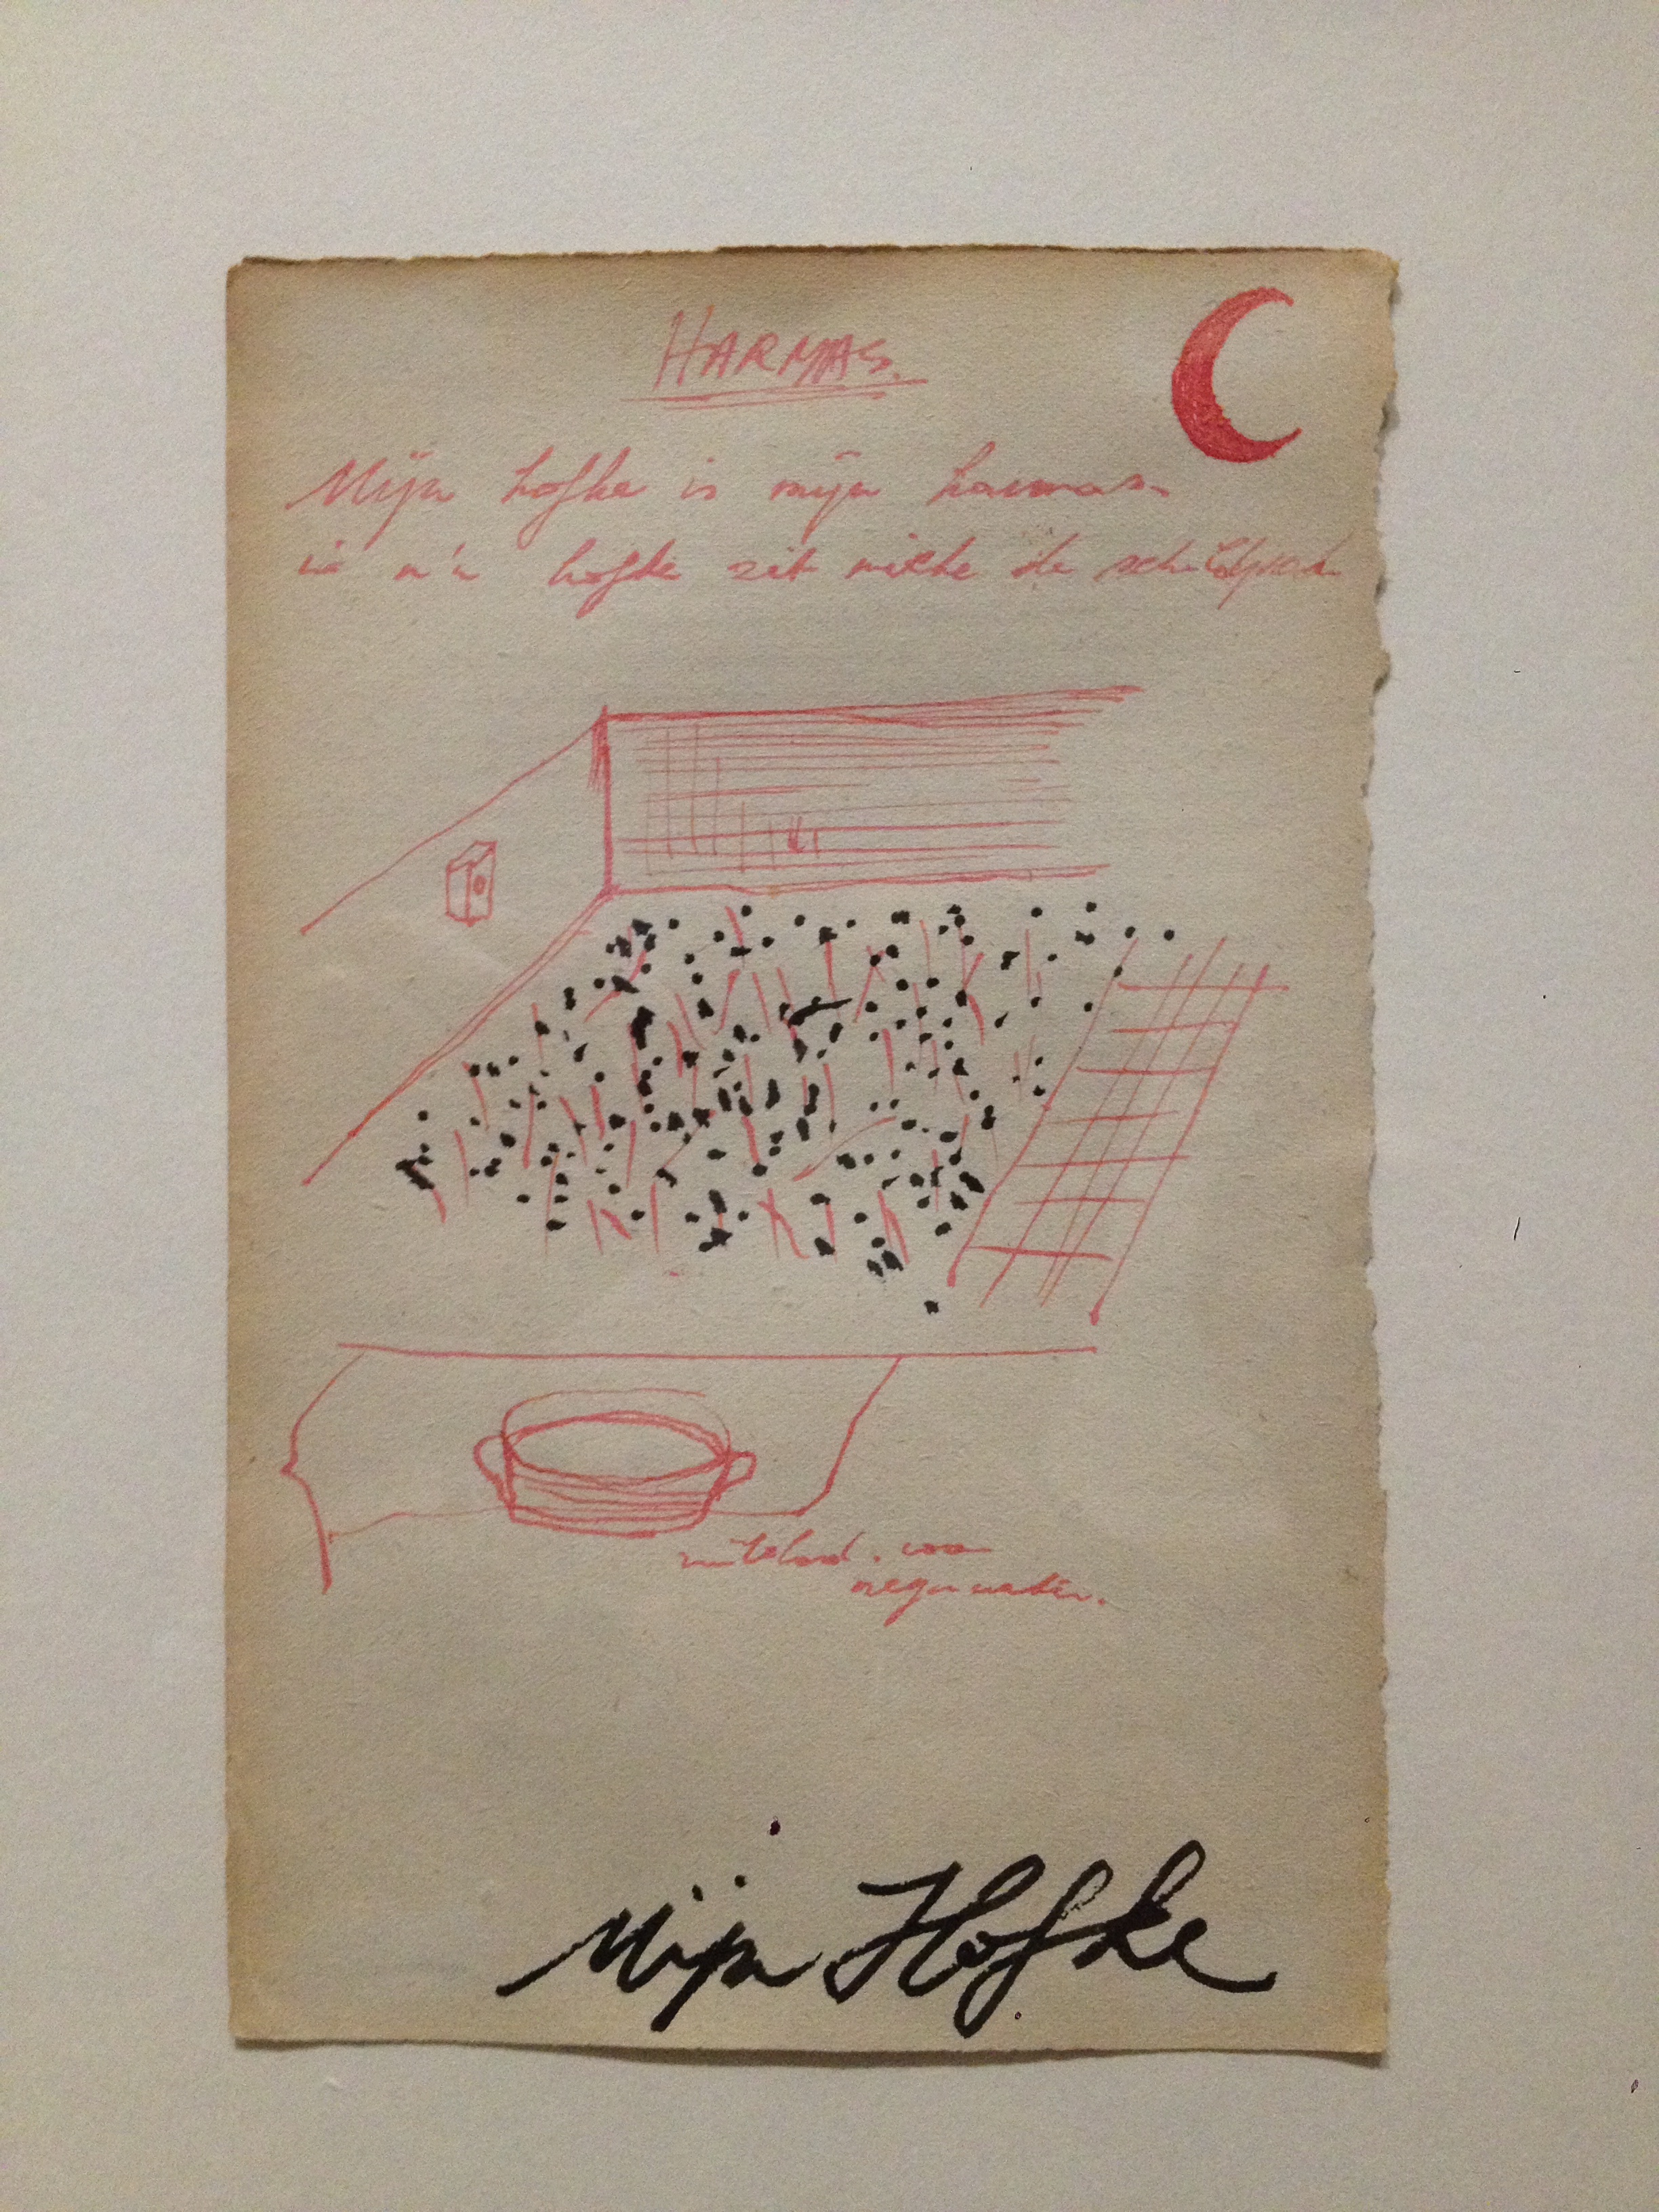 HARMAS.
Mijn hofke is mijn harmas.
in m'n hofke zit miele de schildpad
regenwater.
Mijn Hofke